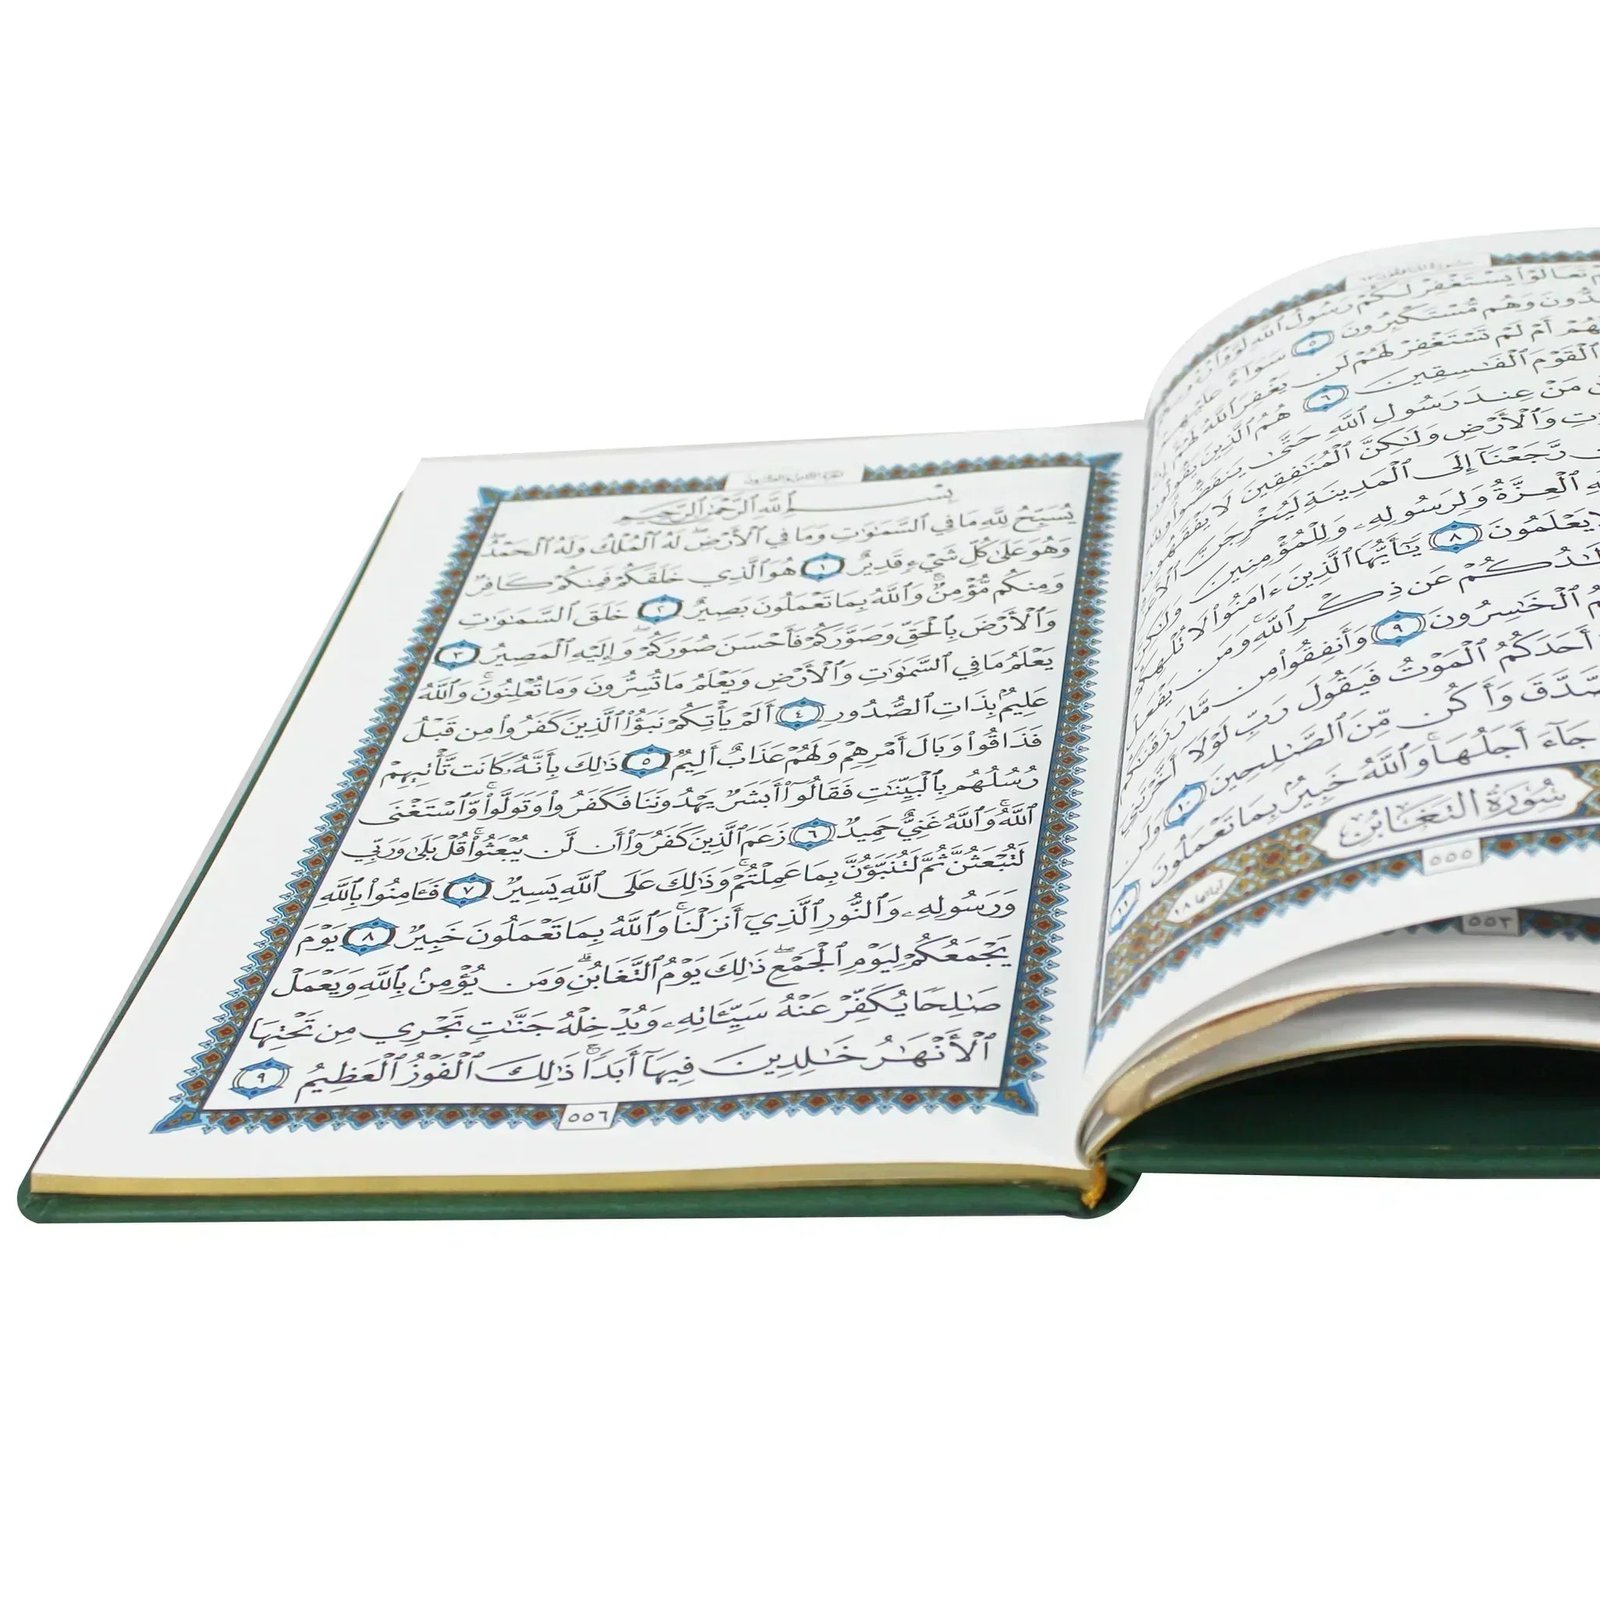 تَعَالَوْا۟ يَسْتَغْفِرْ لَكُمْ رَسُولُ ٱللَّهِ لَوَّوْا۟
وَهُم مُّسْتَكْبِرُونَ ٥ سَوَآءٌ عَلَيْهِمْ
أَمْ لَمْ تَسْتَغْفِرْ لَهُمْ لَن يَغْفِرَ ٱللَّهُ لَهُمْ
ٱلْقَوْمَ ٱلْفَٰسِقِينَ ٦ هُمُ ٱلَّذِينَ يَقُولُونَ
مَنْ عِندَ رَسُولِ ٱللَّهِ حَتَّىٰ يَنفَضُّوا۟ وَلِلَّهِ
وَٱلْأَرْضِ وَلَٰكِنَّ ٱلْمُنَٰفِقِينَ لَا يَفْقَهُونَ
رَّجَعْنَآ إِلَى ٱلْمَدِينَةِ لَيُخْرِجَنَّ
ٱلْعِزَّةُ وَلِرَسُولِهِۦ وَلِلْمُؤْمِنِينَ وَلَٰكِنَّ
يَعْلَمُونَ ٨ يَٰٓأَيُّهَا ٱلَّذِينَ ءَامَنُوا۟ لَا تُلْهِكُمْ
عَن ذِكْرِ ٱللَّهِ وَمَن يَفْعَلْ
ٱلْخَٰسِرُونَ ٩ وَأَنفِقُوا۟ مِن مَّا رَزَقْنَٰكُم
أَحَدَكُمُ ٱلْمَوْتُ فَيَقُولَ رَبِّ لَوْلَآ أَخَّرْتَنِيٓ
وَأَكُن مِّنَ ٱلصَّٰلِحِينَ ١٠ وَلَن
جَآءَ أَجَلُهَا وَٱللَّهُ خَبِيرٌۢ بِمَا تَعْمَلُونَ ١١
سُورَةُ التَّغَابُنِ
آياتها ١٨
٥٥٥
٥٥٣
بِسْمِ ٱللَّهِ ٱلرَّحْمَٰنِ ٱلرَّحِيمِ
يُسَبِّحُ لِلَّهِ مَا فِي ٱلسَّمَٰوَٰتِ وَمَا فِي ٱلْأَرْضِ لَهُ ٱلْمُلْكُ وَلَهُ ٱلْحَمْدُ
وَهُوَ عَلَىٰ كُلِّ شَيْءٍ قَدِيرٌ ١ هُوَ ٱلَّذِي خَلَقَكُمْ فَمِنكُمْ كَافِرٌ
وَمِنكُم مُّؤْمِنٌ وَٱللَّهُ بِمَا تَعْمَلُونَ بَصِيرٌ ٢ خَلَقَ ٱلسَّمَٰوَٰتِ
وَٱلْأَرْضَ بِٱلْحَقِّ وَصَوَّرَكُمْ فَأَحْسَنَ صُوَرَكُمْ وَإِلَيْهِ ٱلْمَصِيرُ ٣
يَعْلَمُ مَا فِي ٱلسَّمَٰوَٰتِ وَٱلْأَرْضِ وَيَعْلَمُ مَا تُسِرُّونَ وَمَا تُعْلِنُونَ وَٱللَّهُ
عَلِيمٌۢ بِذَاتِ ٱلصُّدُورِ ٤ أَلَمْ يَأْتِكُمْ نَبَؤُا۟ ٱلَّذِينَ كَفَرُوا۟ مِن قَبْلُ
فَذَاقُوا۟ وَبَالَ أَمْرِهِمْ وَلَهُمْ عَذَابٌ أَلِيمٌ ٥ ذَٰلِكَ بِأَنَّهُۥ كَانَت تَّأْتِيهِمْ
رُسُلُهُم بِٱلْبَيِّنَٰتِ فَقَالُوٓا۟ أَبَشَرٌ يَهْدُونَنَا فَكَفَرُوا۟ وَتَوَلَّوا۟ وَّٱسْتَغْنَى
ٱللَّهُ وَٱللَّهُ غَنِيٌّ حَمِيدٌ ٦ زَعَمَ ٱلَّذِينَ كَفَرُوٓا۟ أَن لَّن يُبْعَثُوا۟ قُلْ بَلَىٰ وَرَبِّي
لَتُبْعَثُنَّ ثُمَّ لَتُنَبَّؤُنَّ بِمَا عَمِلْتُمْ وَذَٰلِكَ عَلَى ٱللَّهِ يَسِيرٌ ٧ فَـَٔامِنُوا۟ بِٱللَّهِ
وَرَسُولِهِۦ وَٱلنُّورِ ٱلَّذِيٓ أَنزَلْنَا وَٱللَّهُ بِمَا تَعْمَلُونَ خَبِيرٌ ٨ يَوْمَ
يَجْمَعُكُمْ لِيَوْمِ ٱلْجَمْعِ ذَٰلِكَ يَوْمُ ٱلتَّغَابُنِ وَمَن يُؤْمِنۢ بِٱللَّهِ وَيَعْمَلْ
صَٰلِحًا يُكَفِّرْ عَنْهُ سَيِّـَٔاتِهِۦ وَيُدْخِلْهُ جَنَّٰتٍ تَجْرِي مِن تَحْتِهَا
ٱلْأَنْهَٰرُ خَٰلِدِينَ فِيهَآ أَبَدًا ذَٰلِكَ ٱلْفَوْزُ ٱلْعَظِيمُ ٩
٥٥٦